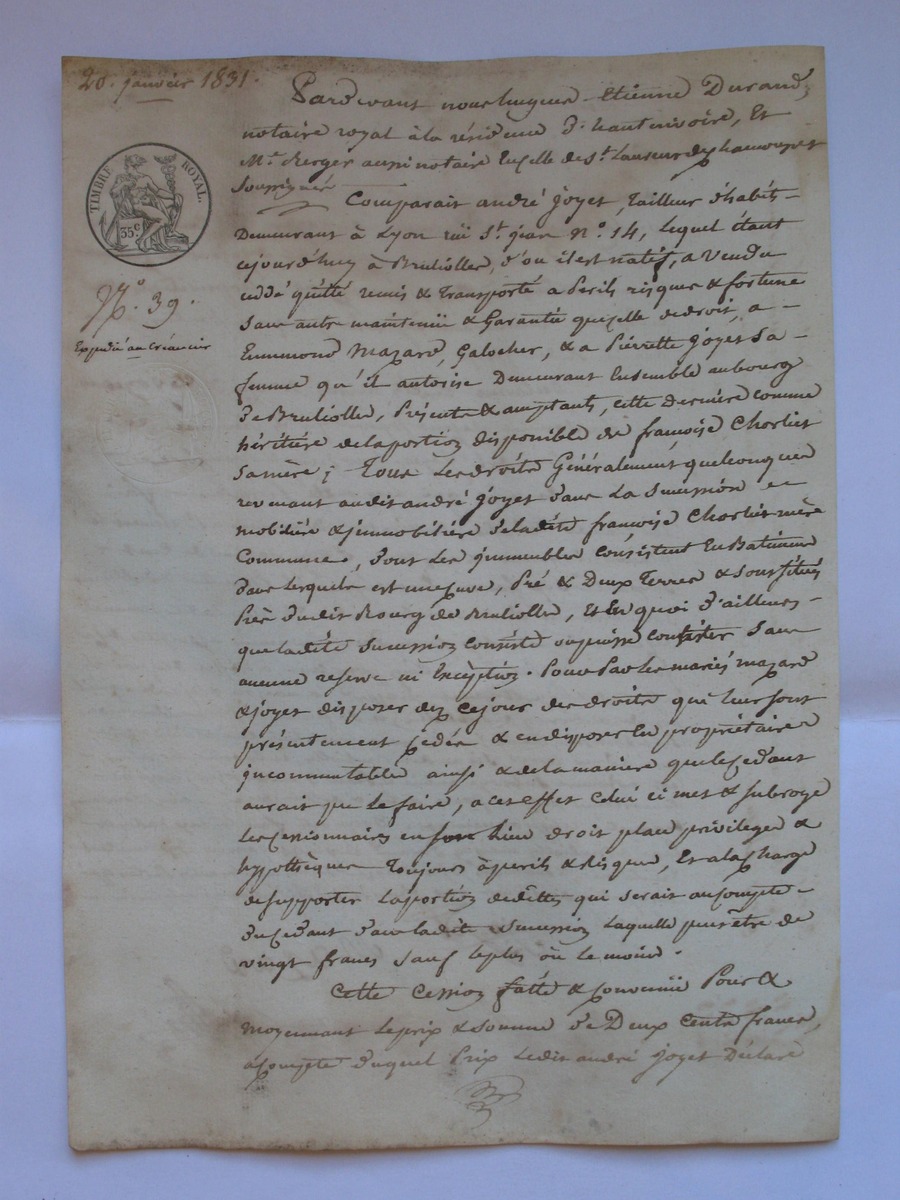 20. janvier 1831.
Pardevant nous hugues Etienne Durand,
notaire royal à la résidence d'hauterivoire, Et
Me. Berger aussi notaire En celle de St. Laurent de chamousset
Soussignés
Comparait andré joyet, Tailleur d'habits
Demeurant à Lyon rüe St. jean No. 14, lequel étant
cejourd'huy à Brulioller, d'ou il est natif, a Vendu
cédé quitté remis & Transporté a Perils risques & fortune
Sans autre maintenüe & Garantie que celle de droit, a
Emmmond Mazard, Galocher, & a Pierrette joyet Sa
femme qu'il autorise Demeurant Ensemble au bourg
De Brulioller, Présents & acceptants, cette Dernière comme
héritière de la portion disponible de françoise Chorlier
Sa mère; Tous Les droits Généralement quelconques
revenant audit andré joyet dans La Succession
mobilière & jmmobilière de ladite françoise Chorlier mère
Commune, dont Les jmmeubles consistent En Batiment
dans Lesquels est une cuve, Pré & Deux Terres & sont sitüés
Près dudit Bourg de Brulioller, Et En quoi d'ailleurs
que ladite Succession consiste ou puisse consister Sans
aucune reserve ni Exception. Pour Par Les mariés mazard
& joyet disposer dez cejour des droits qui leur sont
présentement cédés & en disposer En propriétaires
jncommutables ainsi & de la maniere que le cédant
aurait pu Le faire, a cet effet celui ci met & subroge
Les cessionnaires en son Lieu droit place privileges &
hypothèques Toujours à perils & risques, Et a la charge
de supporter La portion de dêttes qui serait au compte
du cédant dans ladite succession Laquelle peut être de
vingt francs Sauf le plus où le moins.
Cette Cession faite & convenüe Pour &
Moyennant Le prix & somme de Deux Cents francs,
àcompte duquel Prix Ledit andré joyet Déclare
TIMBRE ROYAL.
35.c
No. 39.
Expédié au Créancier